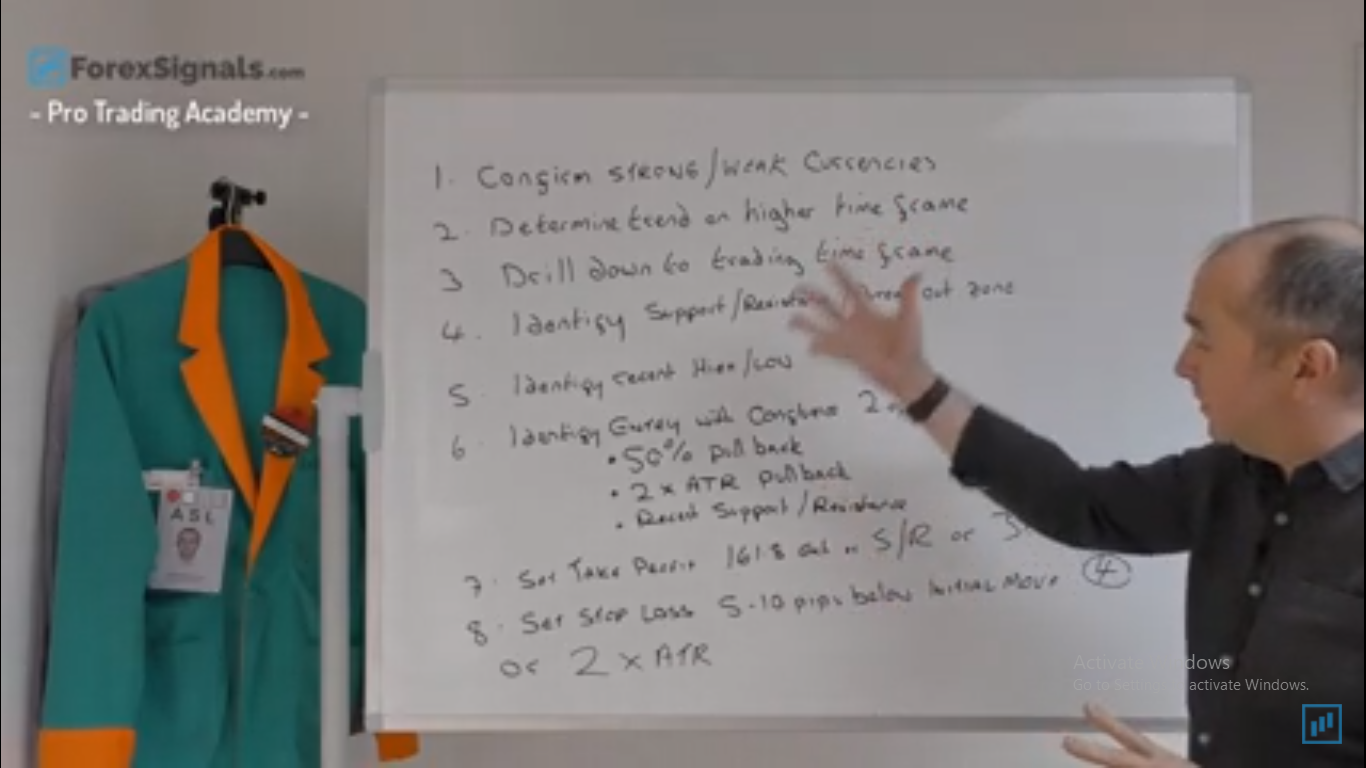 ForexSignals.com
- Pro Trading Academy -
1. Confirm STRONG/WEAK Currencies
2. Determine trend on higher time frame
3 Drill down to trading time frame
4. Identify Support/Resistance / out zone
5. Identify recent High/Low
6. Identify Entry with 2
• 50% pullback
• 2 x ATR pullback
• Recent Support/Resistance
7. Set Take Profit 161.8 or S/R or 3
8. Set Stop Loss 5-10 pips below Initial Move 4
or 2 x ATR
ASL
Activate Windows
Go to activate Windows.